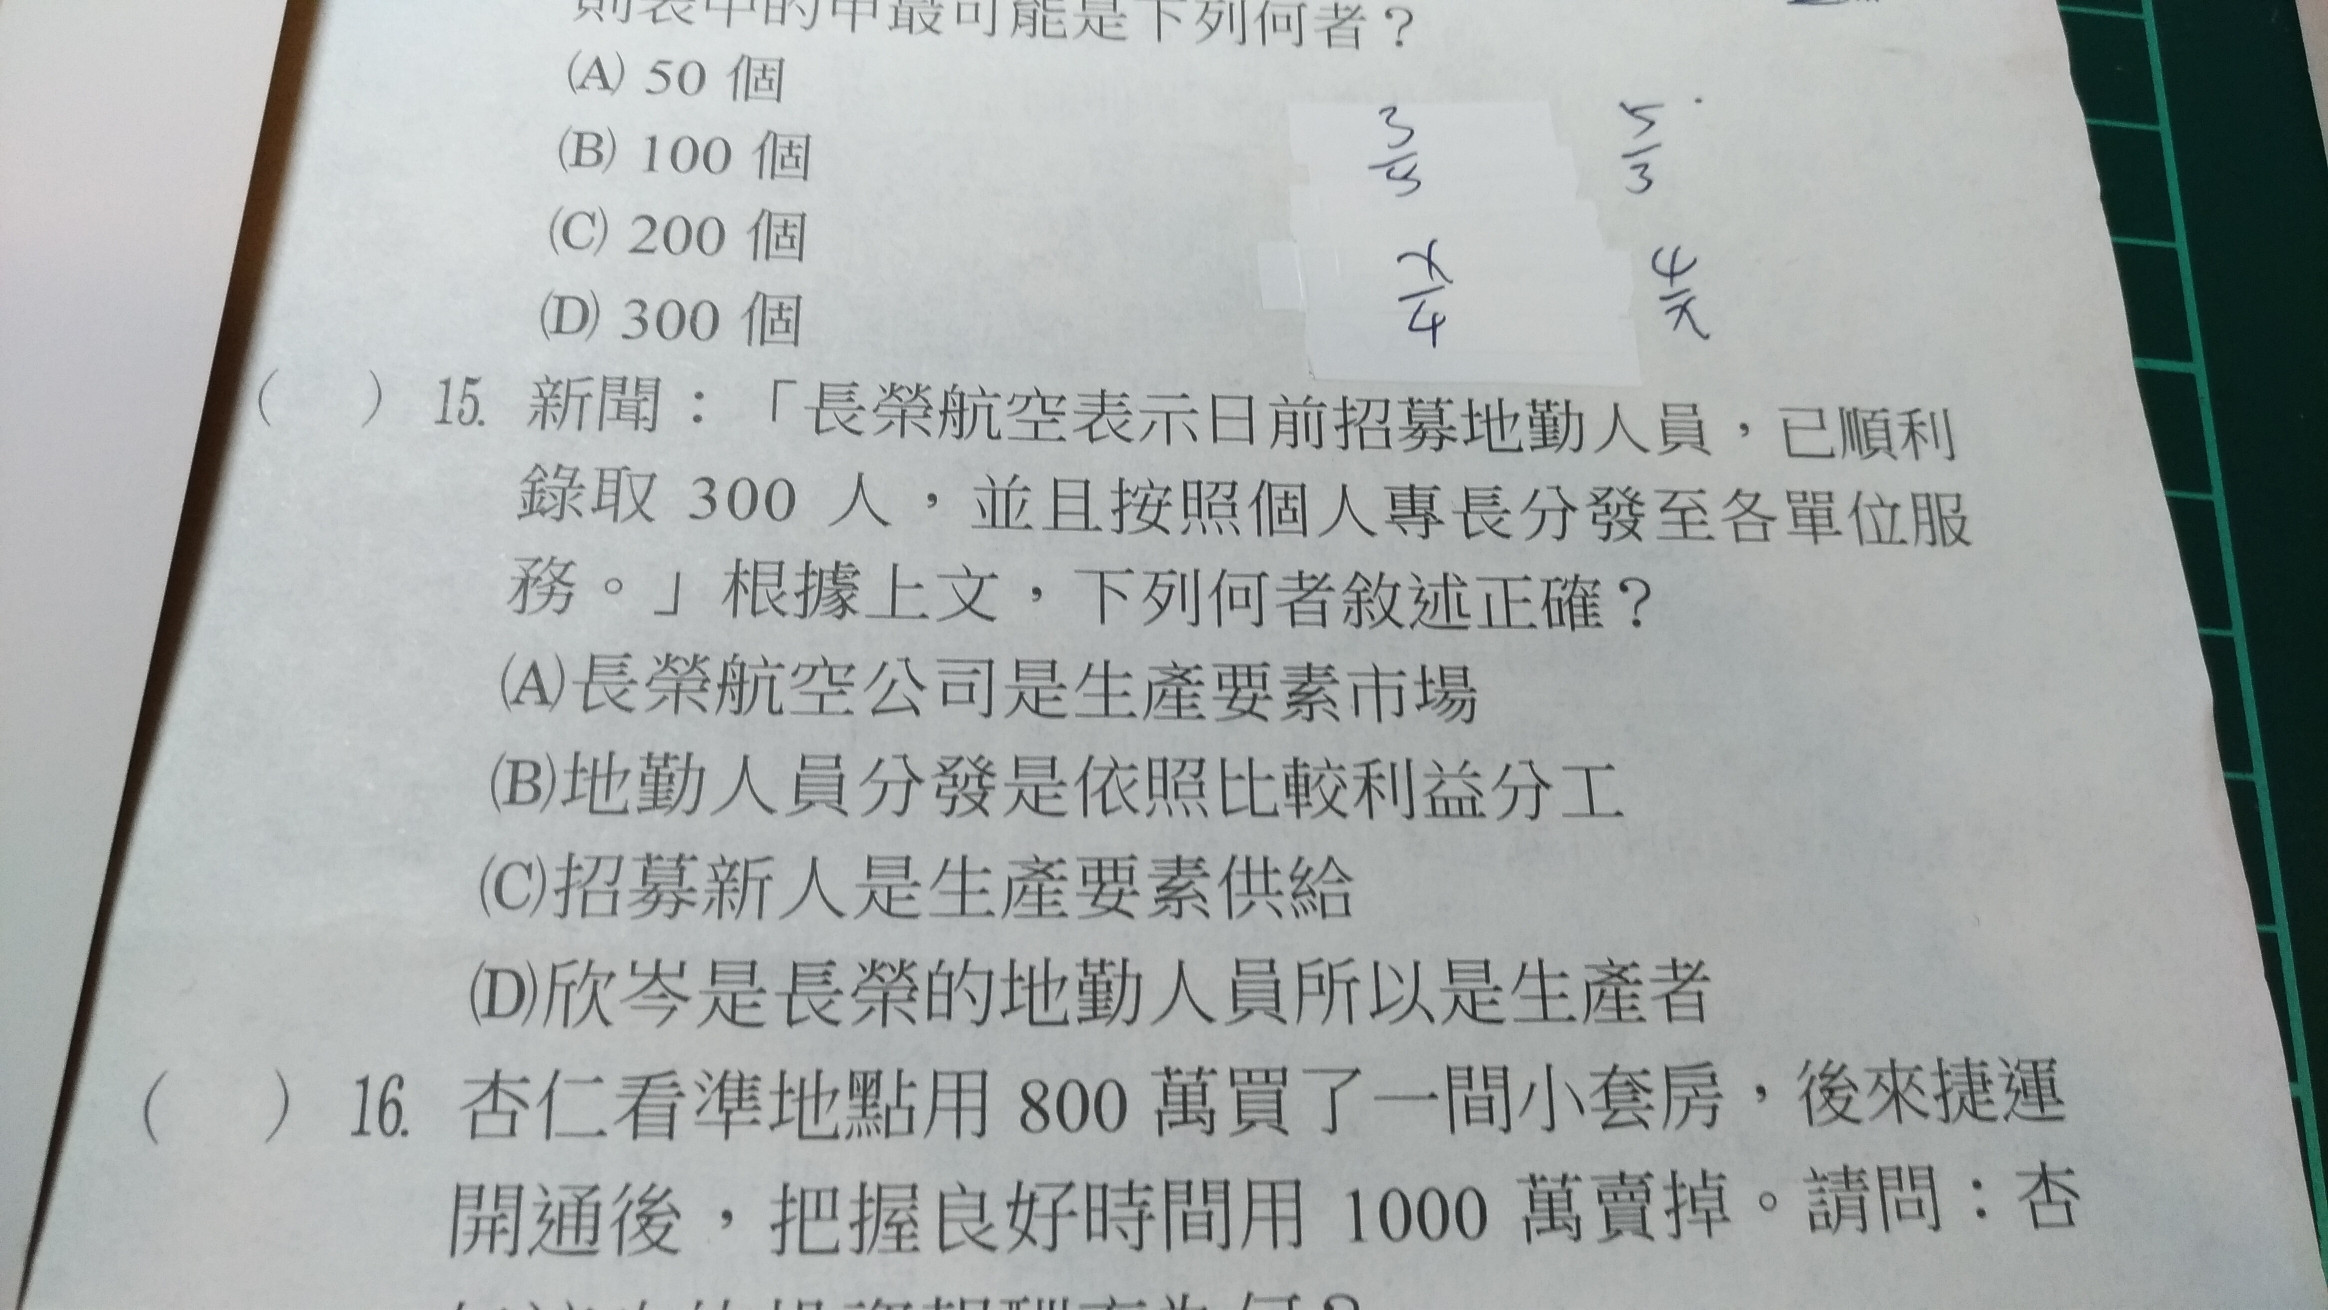 則表中的甲最可能是下列何者？
(A) 50 個
(B) 100 個
(C) 200 個
(D) 300 個
3/5 5/3
x/4 4/x
（ ）15. 新聞：「長榮航空表示日前招募地勤人員，已順利
錄取 300 人，並且按照個人專長分發至各單位服
務。」根據上文，下列何者敘述正確？
(A)長榮航空公司是生產要素市場
(B)地勤人員分發是依照比較利益分工
(C)招募新人是生產要素供給
(D)欣岑是長榮的地勤人員所以是生產者
（ ）16. 杏仁看準地點用 800 萬買了一間小套房，後來捷運
開通後，把握良好時間用 1000 萬賣掉。請問：杏